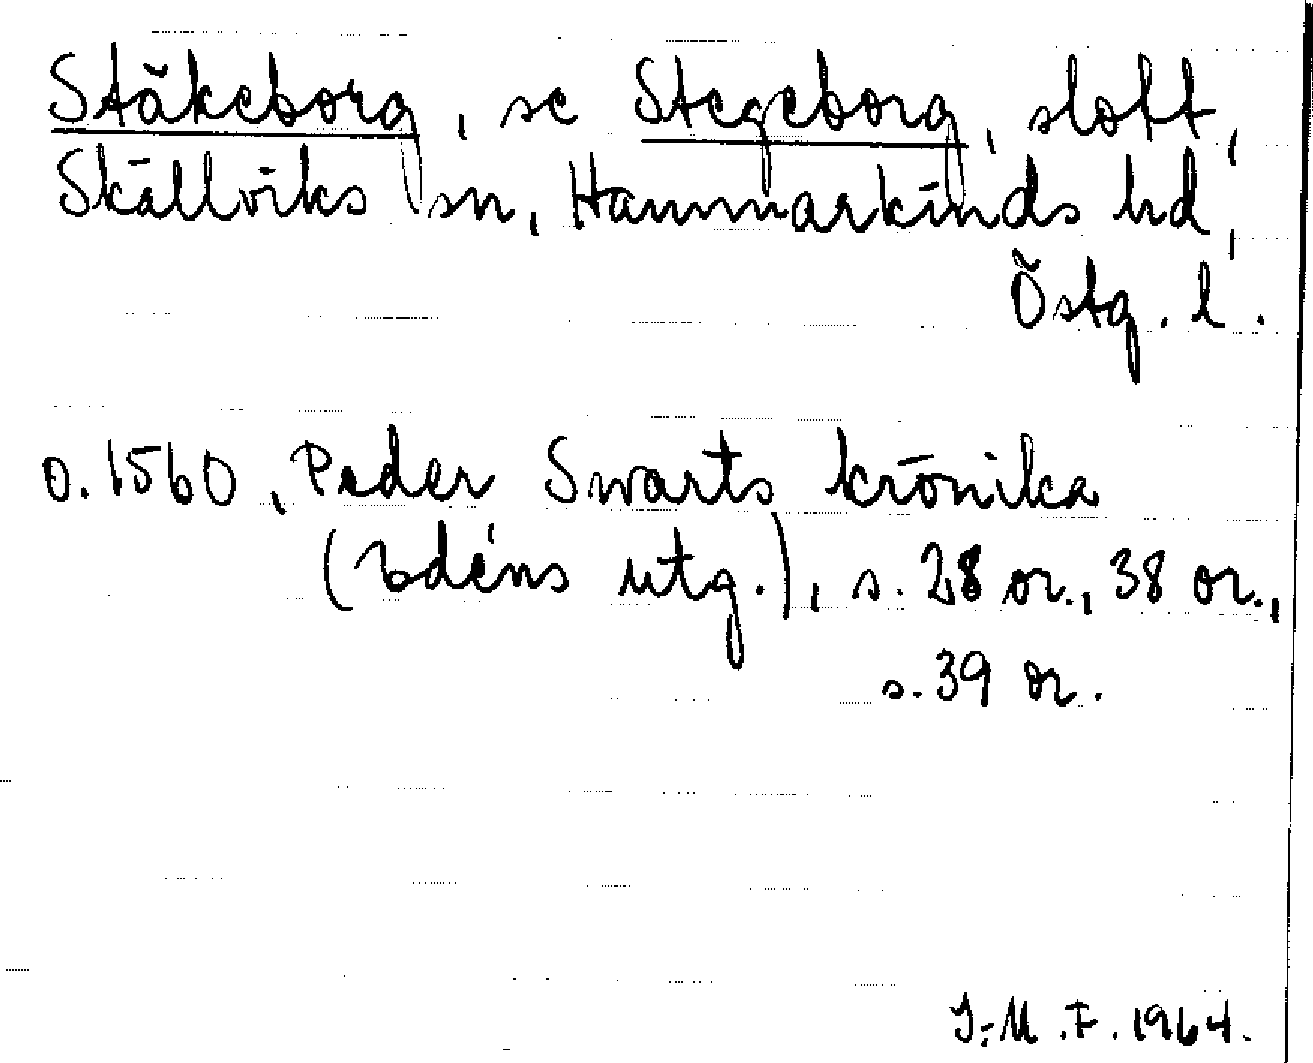 Stäkeborg, se Stegeborg, slott,
Skällviks sn, Hammarkinds hd,
Östg. l.
o. 1560, Peder Swarts krönika
(Edéns utg.), s. 28 or., 38 or.,
s. 39 or.
I-M.F. 1964.